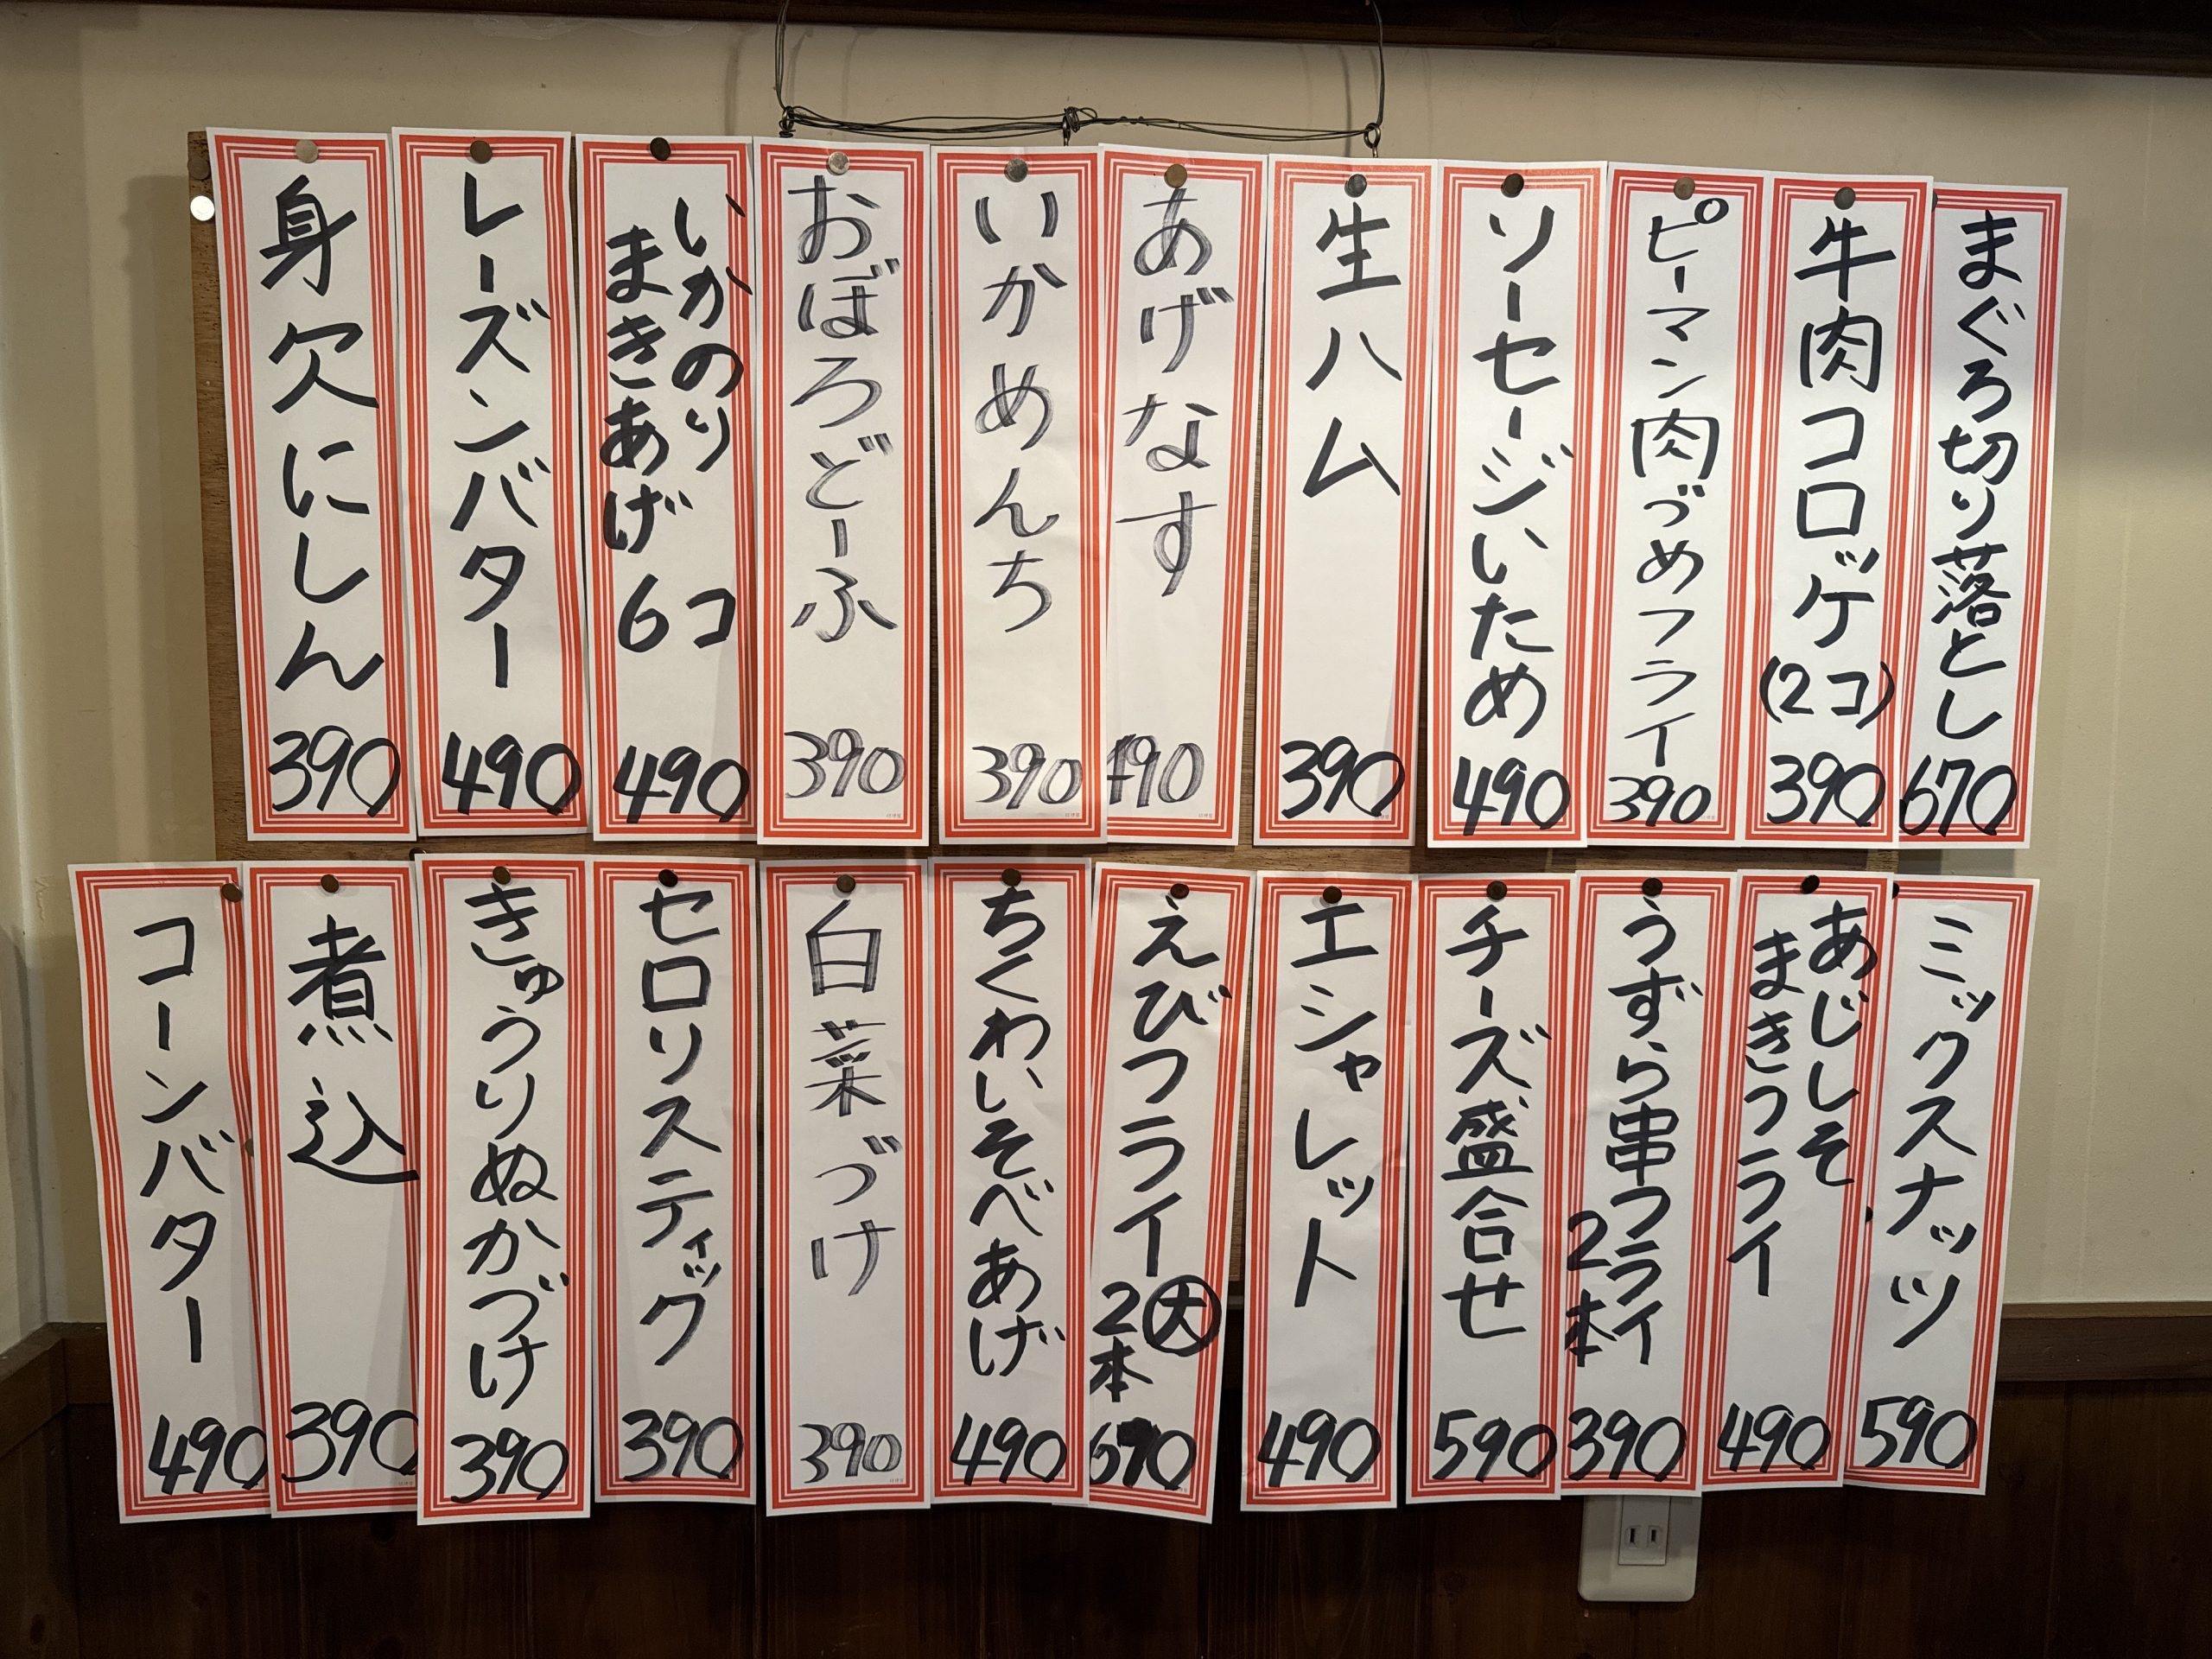 まぐろ切り落とし
670
牛肉コロッケ
(2コ)
390
ピーマン肉づめフライ
390
ソーセージいため
490
生ハム
390
あげなす
490
いかめんち
390
おぼろどーふ
390
いかのり
まきあげ
6コ
490
レーズンバター
490
身欠にしん
390
ミックスナッツ
590
あじしそ
まきフライ
490
うずら串フライ
2本
390
チーズ盛合せ
590
エシャレット
490
えびフライ大
2本
ちくわいそべあげ
490
白菜づけ
390
セロリスティック
390
きゅうりぬかづけ
390
煮込
390
コーンバター
490